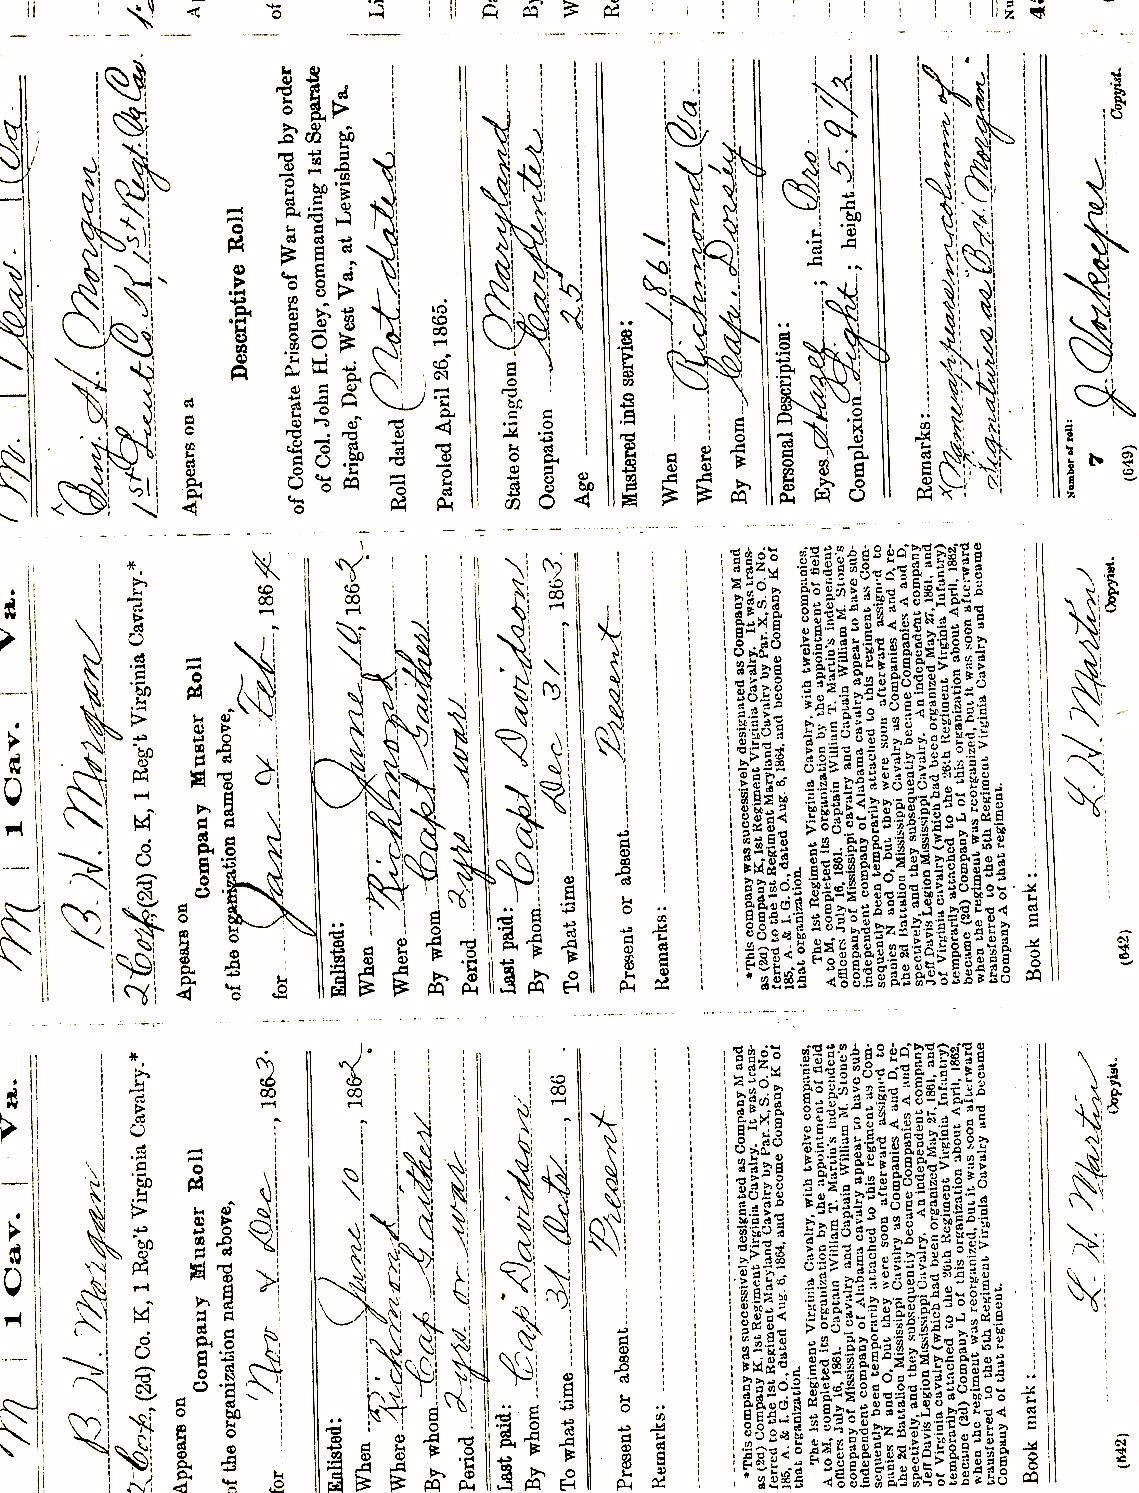 M | 1 Cav. | Va.
B W. Morgan
2 Corp, (2d) Co. K, 1 Reg't Virginia Cavalry.*
Appears on
Company Muster Roll
of the organization named above,
for Nov & Dec, 1863.
Enlisted:
When June 10, 1862.
Where Richmond
By whom Cap Gaither
Period 2 yrs or war
Last paid:
By whom Cap Davidson
To what time 31 Octs, 186
Present or absent Present
Remarks:
*This company was successively designated as Company M and
as (2d) Company K, 1st Regiment Virginia Cavalry. It was trans-
ferred to the 1st Regiment Maryland Cavalry by Par. X, S. O. No.
185, A. & I. G. O., dated Aug. 6, 1864, and become Company K of
that organization.
The 1st Regiment Virginia Cavalry, with twelve companies,
A to M, completed its organization by the appointment of field
officers July 16, 1861. Captain William T. Martin's independent
company of Mississippi cavalry and Captain William M. Stone's
independent company of Alabama cavalry appear to have sub-
sequently been temporarily attached to this regiment as Com-
panies N and O, but they were soon afterward assigned to
the 2d Battalion Mississippi Cavalry as Companies A and D, re-
spectively, and they subsequently became Companies A and D,
Jeff Davis Legion Mississippi Cavalry. An independent company
of Virginia cavalry (which had been organized May 27, 1861, and
temporarily attached to the 26th Regiment Virginia Infantry)
became (2d) Company L of this organization about April, 1862,
when the regiment was reorganized, but it was soon afterward
transferred to the 5th Regiment Virginia Cavalry and became
Company A of that regiment.
Book mark:
L. W. Martin
(642) Copyist.
M | 1 Cav. | Va.
B. W. Morgan
2 Corp, (2d) Co. K, 1 Reg't Virginia Cavalry.*
Appears on
Company Muster Roll
of the organization named above,
for Jan & Feb, 1864
Enlisted:
When June 10, 1862.
Where Richmond
By whom Capt Gaither
Period 2 yrs war
Last paid:
By whom Capt Davidson
To what time Dec 31, 1863.
Present or absent Present
Remarks:
*This company was successively designated as Company M and
as (2d) Company K, 1st Regiment Virginia Cavalry. It was trans-
ferred to the 1st Regiment Maryland Cavalry by Par. X, S. O. No.
185, A. & I. G. O., dated Aug. 6, 1864, and become Company K of
that organization.
The 1st Regiment Virginia Cavalry, with twelve companies,
A to M, completed its organization by the appointment of field
officers July 16, 1861. Captain William T. Martin's independent
company of Mississippi cavalry and Captain William M. Stone's
independent company of Alabama cavalry appear to have sub-
sequently been temporarily attached to this regiment as Com-
panies N and O, but they were soon afterward assigned to
the 2d Battalion Mississippi Cavalry as Companies A and D, re-
spectively, and they subsequently became Companies A and D,
Jeff Davis Legion Mississippi Cavalry. An independent company
of Virginia cavalry (which had been organized May 27, 1861, and
temporarily attached to the 26th Regiment Virginia Infantry)
became (2d) Company L of this organization about April, 1862,
when the regiment was reorganized, but it was soon afterward
transferred to the 5th Regiment Virginia Cavalry and became
Company A of that regiment.
Book mark:
L. W. Martin
(642) Copyist.
M. | 1 Cav. | Va
Benj. H. Morgan
1st Lieut Co. K 1st Regt. Va Cav
Appears on a
Descriptive Roll
of Confederate Prisoners of War paroled by order
of Col. John H. Oley, commanding 1st Separate
Brigade, Dept. West Va., at Lewisburg, Va.
Roll dated Not dated
Paroled April 26, 1865.
State or kingdom Maryland
Occupation Carpenter
Age 25
Mustered into service:
When 1861
Where Richmond Va
By whom Cap. Dorsey
Personal Description:
Eyes Hazel; hair Bro
Complexion Light; height 5. 9 1/2
Remarks:
x Name appears in column of
signatures as B. W. Morgan.
Number of roll:
7 J Voskoeper
(649) Copyist.